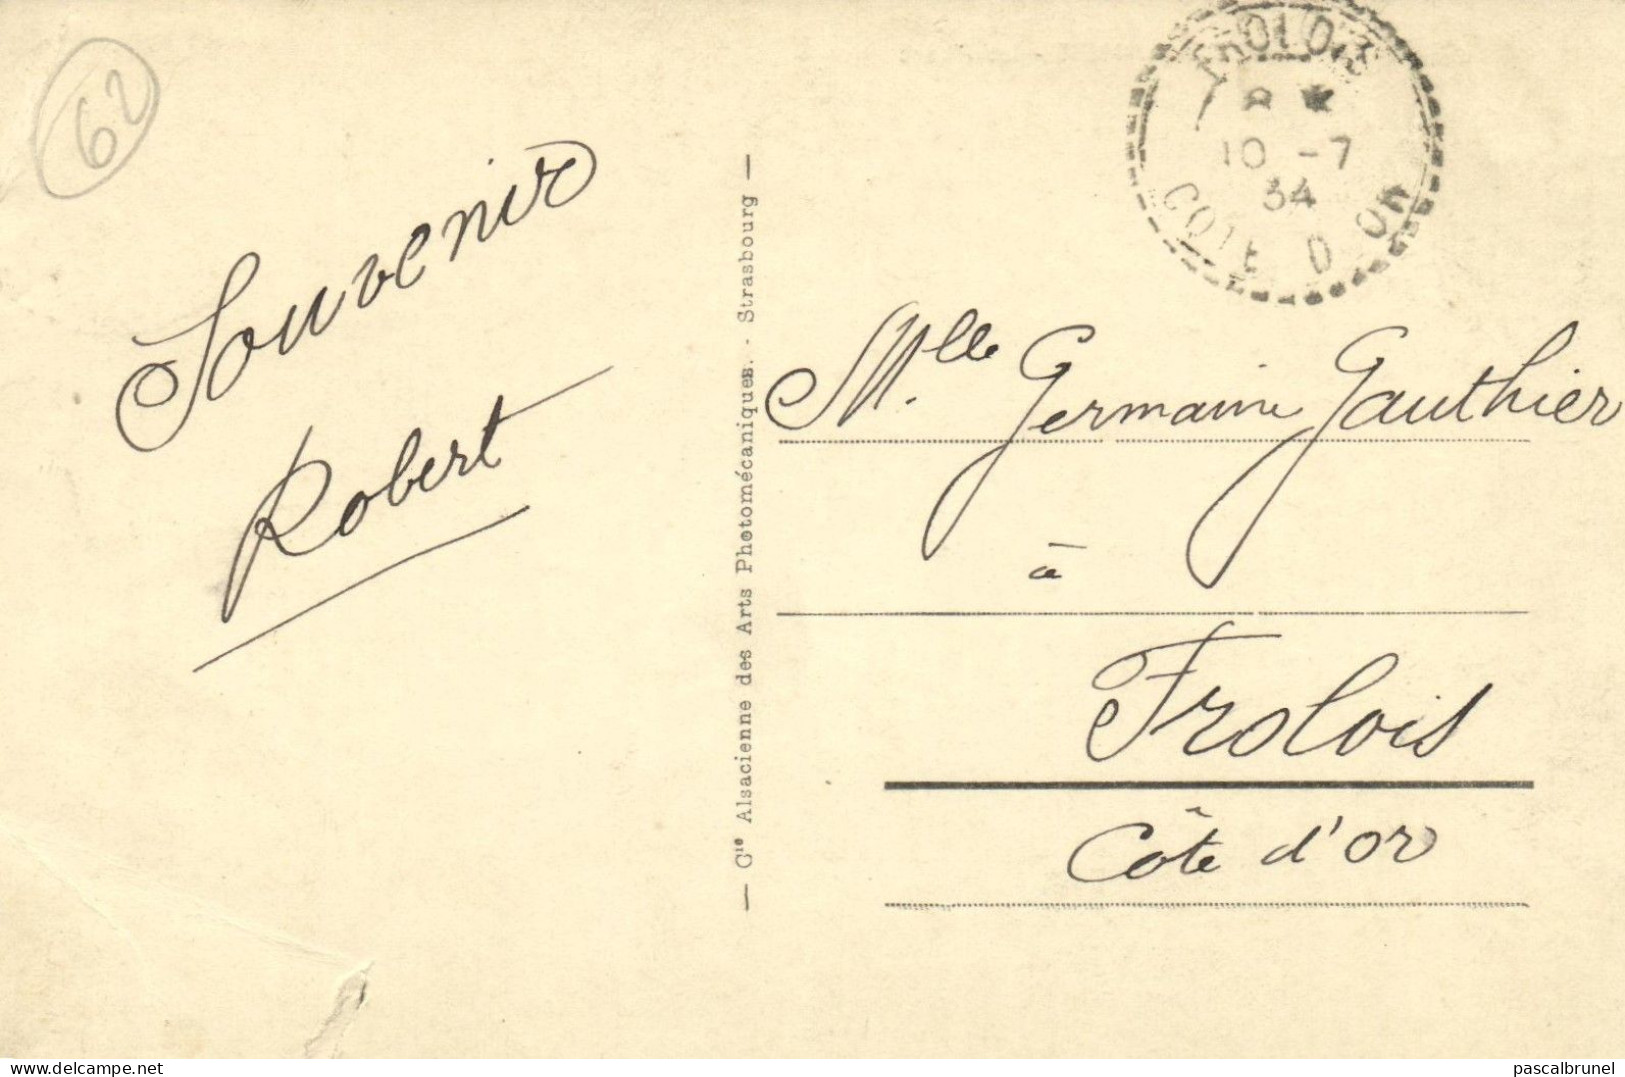 62
Souvenir
Robert
— Cie Alsacienne des Arts Photomécaniques. - Strasbourg —
FROLOIS
8 *
10 -7
34
COTE D'OR
Mlle Germaine Gauthier
à
Frolois
Côte d'or
delcampe.net
pascalbrunel